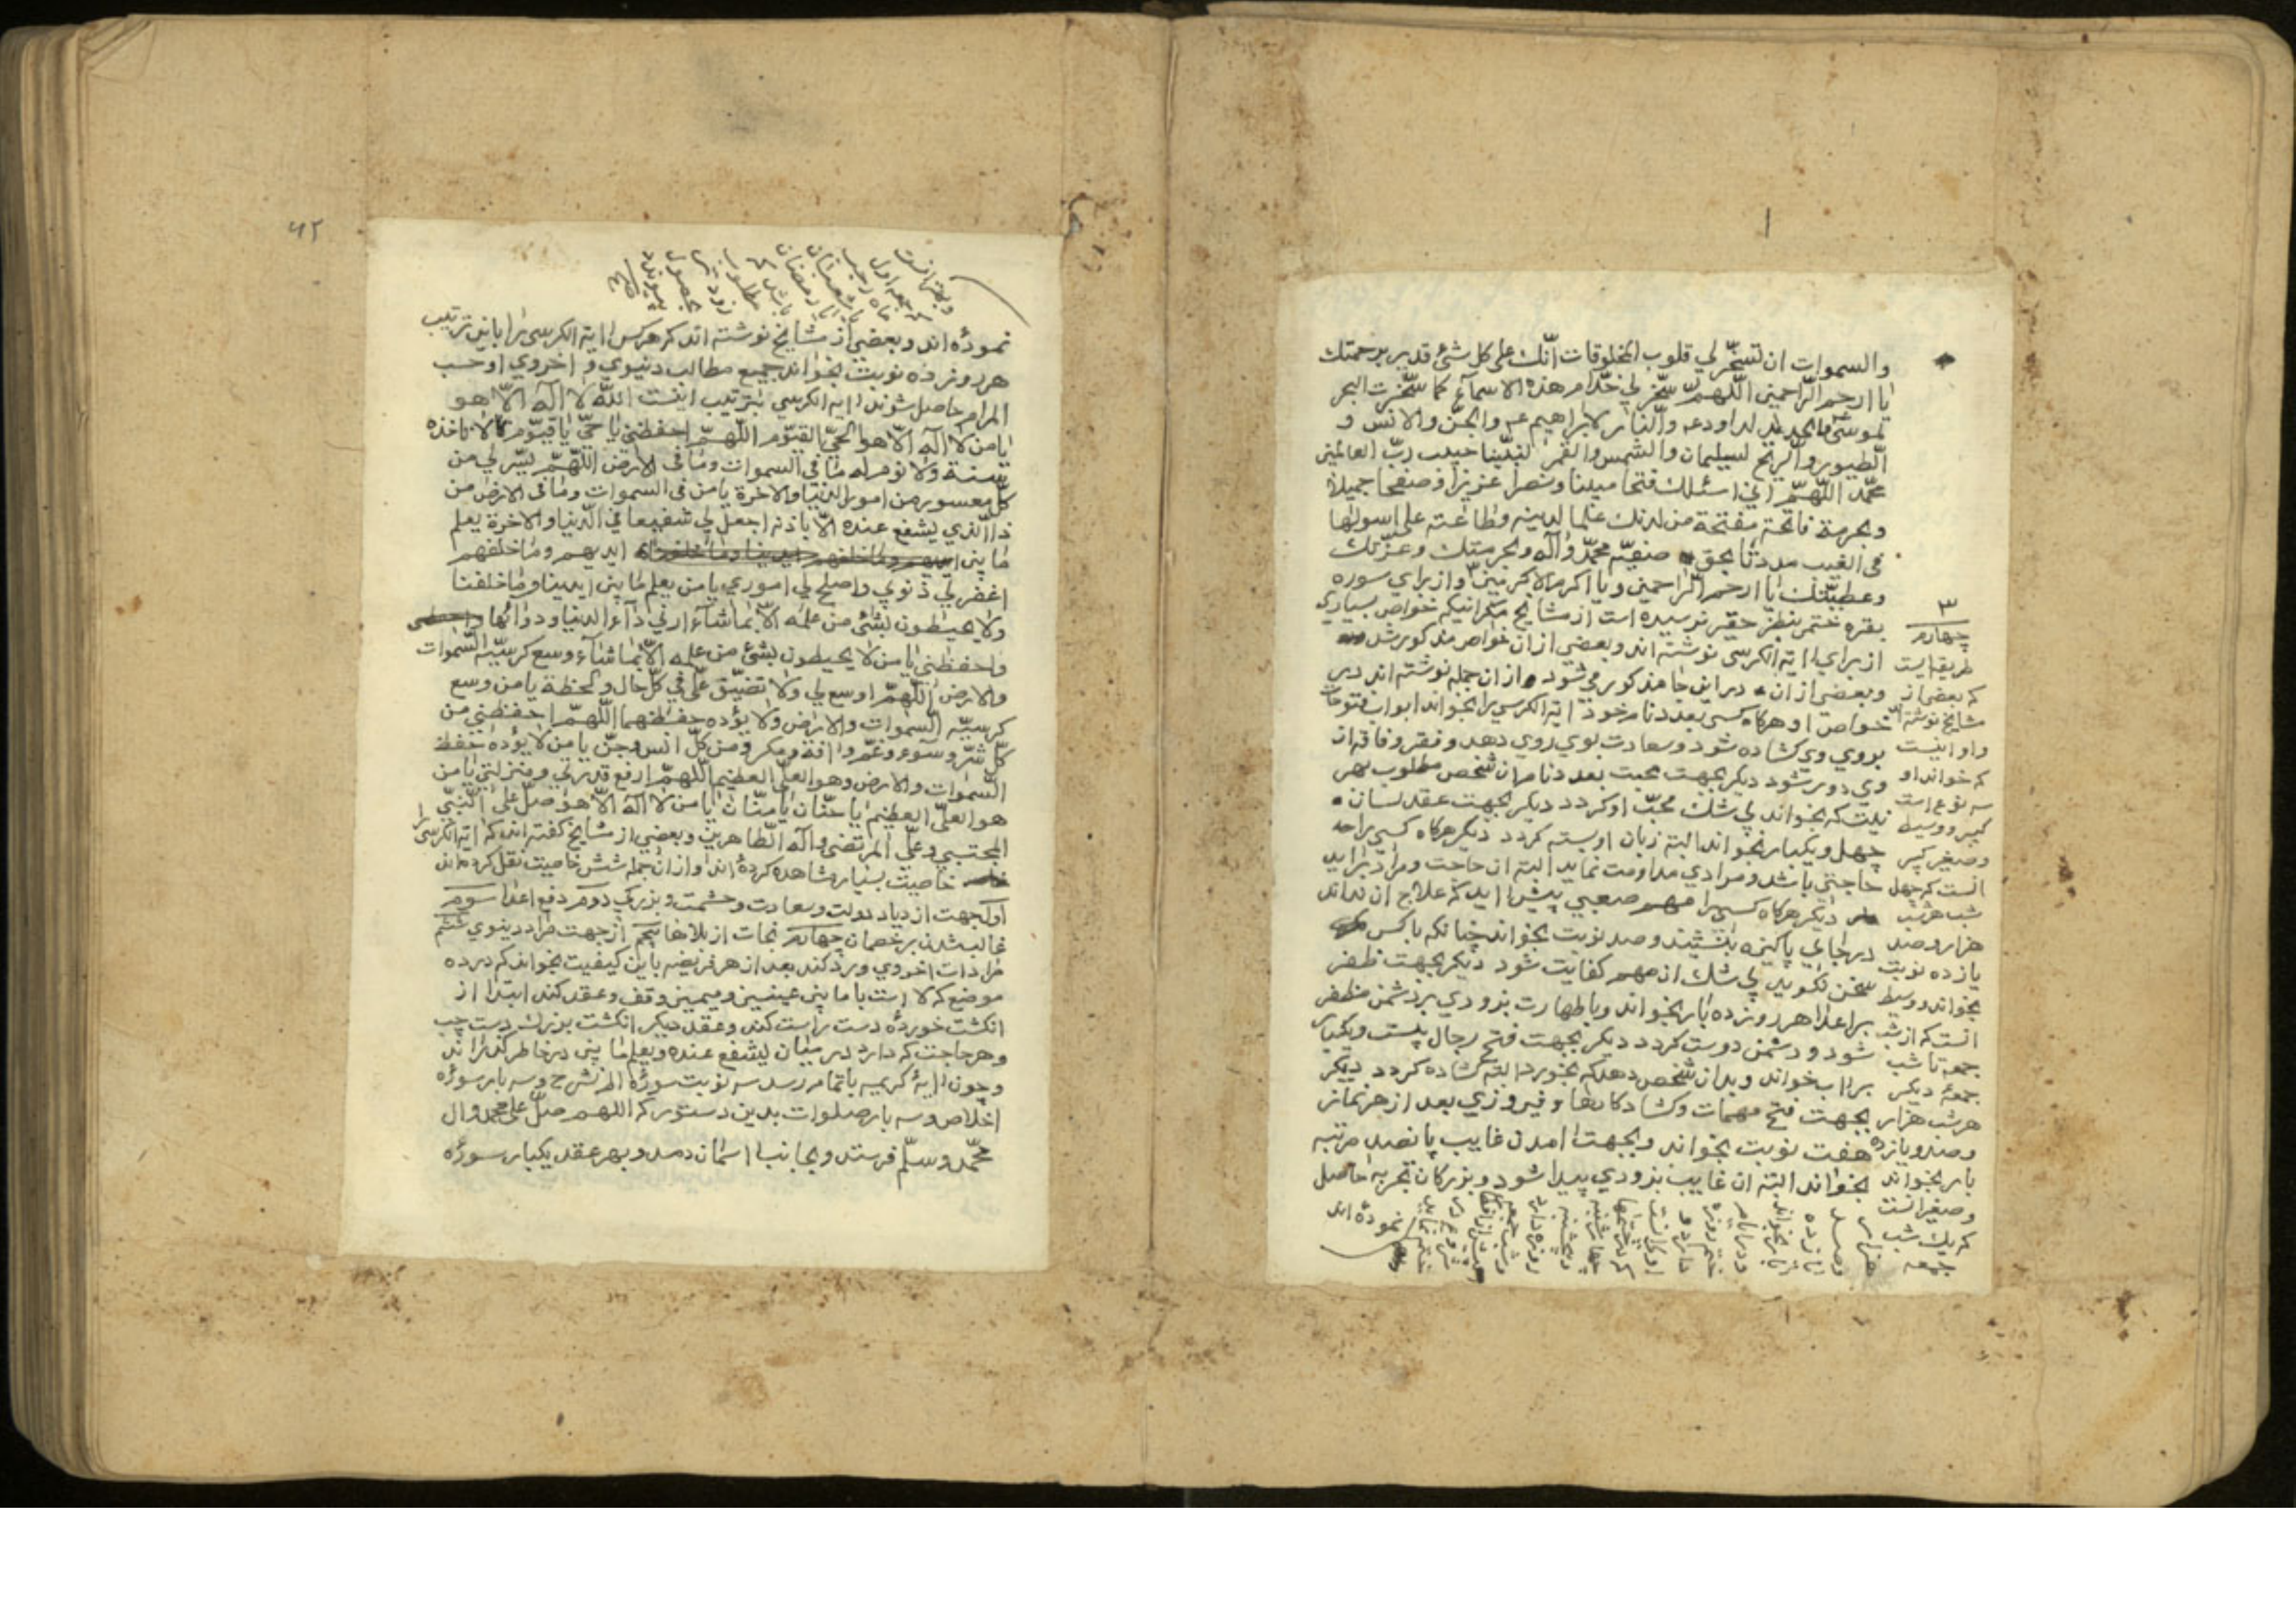 والسموات ان تسخّر لي قلوب المخلوقات انّك على كل شئ قدير برحمتك
يا ارحم الرّاحمين اللّهمّ سخّر لي خدّام هذه الاسمآء كما سخّرت البحر
لموسى والحديد لداود عم والنّار لابراهيم عم والجنّ والانس و
الطّيور والرّيح لسليمان والشمس والقمر لنبيّنا حبيب ربّ العالمين
محمّد اللّهمّ اني اسئلك فتحا مبينا ونصرا عزيزا وصفحا جميلا
وبحرمة فاتحة مفتحة من لدنك علما لدينه وطاعته على اسولها
في الغيب مددنا بحق صفيّه محمّد وآله وبحرمتك وعزّتك
وعطيّتك يا ارحم الرّاحمين ويا اكرم الاكرمين ٣ و از براي سوره
بقره ختمر بنظر حقير نرسيده است از مشايخ مكر انيكه خواص بسياري
از براي اية الكرسي نوشته اند وبعضي از ان خواص مذكور شد
وبعضي از ان در اين جا مذكور مي شود و از ان جمله نوشته اند در
خواص او هركاه كسي بعدد نام خود اية الكرسي را بخواند ابواب فتوحات
بروي وي كشاده شود وسعادت بوي روي دهد وفقر وفاقه از
وي دور شود ديكر بجهت محبت بعدد نام ان شخص مطلوب بهر
نيت كه بخواند بي شك محبّ او كردد ديكر بجهت عقد لسان
چهل ويكبار بخواند البته زبان او بسته كردد ديكر هركاه كسي را حا
حاجتي باشد ومرادي مداومت نمايد البته ان حاجت ومراد برايد
ديكر هركاه كسي را مهم صعبي پيش ايد كه علاج ان نداند
در جاي پاكيزه بنشيند وصد نوبت بخواند چنانكه باكس
سخن نكويد بي شك ان مهم كفايت شود ديكر بجهت ظفر
بر اعدا هر روز ده بار بخواند وباطهارت بزودي بر دشمن مظفر
شود ودشمن دوست كردد ديكر بجهت فتح رجال بيست ويكبار
بر اب خواند وبدان شخص دهد كه بخورد البته كشاده كردد ديكر
بجهت فتح مهمات وكشاد كارها وفيروزي بعد از هر نماز
هفت نوبت بخواند وبجهت امدن غايب پانصد مرتبه
بخواند البته ان غايب بزودي پيدا شود وبزركان تجربه حاصل
نموده اند
٣
چهارم
طريقه ايست
كه بعضي از
مشايخ نوشته اند
و او اينست
كه خواند او
سه نوع است
كبير ووسيط
وصغير كبير
انست كه چهل
شب هر شب
هزار وصد
يازده نوبت
بخواند ووسيط
انست كه از شب
جمعه تا شب
جمعه ديكر
هر شب هزار
وصد ويازده
بار بخواند
وصغير انست
كه يك شب
جمعه
٤٢
وبهتر انست
كه جمعه اول
ماه رجب
يا شعبان
يا رمضان
باشد كه
مطلوب
زود
بحصول
پيوندد
نموده اند وبعضي از مشايخ نوشته اند كه هركس اية الكرسي را باين ترتيب
هر روز ده نوبت بخواند جميع مطالب دنيوي و اخروي او حسب
المرام حاصل شوند اية الكرسي بترتيب اينست اللّه لا اله الّا هو
يا من لا اله الّا هو الحيّ القيّوم اللّهمّ احفظني يا حيّ يا قيّوم لا تاخذه
سنة ولا نوم له ما في السموات وما في الارض اللّهمّ يسّر لي من
كلّ معسور من امور الدنيا والاخرة يا من في السموات وما في الارض من
ذا الّذي يشفع عنده الّا باذنه اجعل لي شفيعا في الدّنيا والاخرة يعلم
ما بين ايديهم وما خلفهم
اغفر لي ذنوبي واصلح لي اموري يا من يعلم ما بين ايدينا وما خلفنا
ولا يحيطون بشئ من علمه الّا بما شآء ارني دآء الدنيا ودوائها
واحفظني يا من لا يحيطون بشئ من علمه الّا بما شآء وسع كرسيّه السّموات
والارض اللّهمّ اوسع لي ولا تضيّق علّي في كلّ حال ولحظة يا من وسع
كرسيّه السّموات والارض ولا يؤده حفظهما اللّهمّ احفظني من
كلّ شرّ وسوء وغمّ وافة ومكر ومن كلّ انس وجنّ يا من لا يؤده حفظ
السّموات والارض وهو العليّ العظيم اللّهمّ ارفع قدري ومنزلتي يا من
هو العليّ العظيم يا حنّان يا منّان يا من لا اله الّا هو صلّ على النّبيّ
المجتبي وعليّ المرتضى وآله الطّاهرين وبعضي از مشايخ كفته اند كه اية الكرسي را
خاصيت بسيار مشاهده كرده اند و از ان جمله شش خاصيت نقل كرده اند
اول جهت ازدياد دولت وسعادت وحشمت وبزركي دوم دفع اعدا سوم
غالب شدن بر خصمان چهارم نجات از بلاها پنجم از جهت مراد دنيوي ششم
مرادات اخروي ورد كند بعد از هر فريضه باين كيفيت بخواند كه در ده
موضع كه لا است با ما بين عينين وميمين وقف وعقد كند ابتدا از
انكشت خورده دست راست كند وعقد ديكر انكشت بزرك دست چپ
وهر حاجت كه دارد در ميان يشفع عنده ويعلم ما بين در خاطر كذراند
وچون اية كريمه باتمام رسد سه نوبت سورۀ الم نشرح وسه بار سورۀ
اخلاص وسه بار صلوات بدين دستور كه اللهم صلّ على محمد وال
محمّد وسلّم فرستد وبجانب اسمان دمد وبهر عقد يكبار سورۀ